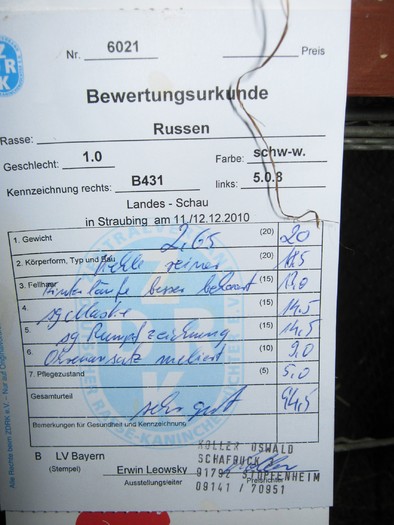 Nr. 6021 Preis
Bewertungsurkunde
Rasse: Russen
Geschlecht: 1.0 Farbe: schw-w.
Kennzeichnung rechts: B431 links: 5.0.8
Landes - Schau
in Straubing am 11./12.12.2010
1. Gewicht 2,65 (20) 20
2. Körperform, Typ und Bau (20)
3. Fellhaar Hinterläufe besser behaart (15)
4. sg Maske (15) 14,5
5. sg Rumpfzeichnung (15) 14,5
6. Ohrenansatz meliert (10) 9,0
7. Pflegezustand (5) 5,0
Gesamturteil sehr gut 94,5
Bemerkungen für Gesundheit und Kennzeichnung:
B LV Bayern
(Stempel) Erwin Leowsky
Ausstellungsleiter Preisrichter
KOLLER OSWALD
SCHAFBRUCK
91792 STOPFENHEIM
09141 / 70951